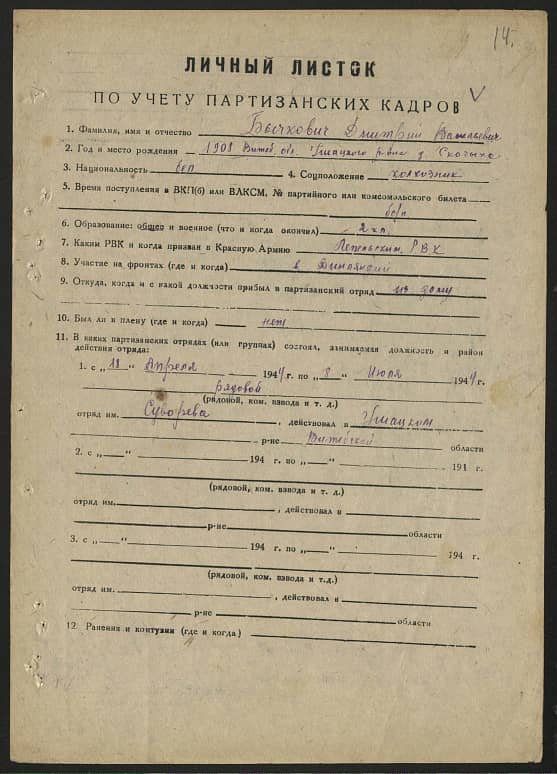 14.
ЛИЧНЫЙ ЛИСТОК
ПО УЧЕТУ ПАРТИЗАНСКИХ КАДРОВ
1. Фамилия, имя и отчество Бычкович Дмитрий Васильевич
2. Год и место рождения 1908 Витеб. обл. Ушацкого р-на д.
3. Национальность бел 4. Соцположение колхозник
5. Время поступления в ВКП(б) или ВЛКСМ, № партийного или комсомольского билета
б/п
6. Образование: общее и военное (что и когда окончил) 2 кл.
7. Каким РВК и когда призван в Красную Армию РВК
8. Участие на фронтах (где и когда) в Финляндии
9. Откуда, когда и с какой должности прибыл в партизанский отряд из дому
10. Был ли в плену (где и когда) нет
11. В каких партизанских отрядах (или группах) состоял, занимаемая должность и район
действия отряда:
1. с „18“ Апреля 1944 г. по „8“ Июля 1944 г.
рядовой
(рядовой, ком. взвода и т. д.)
отряд им. Суворова, действовал в Ушацком
р-не Витебской области
2. с „ “ 194 г. по „ “ 194 г.
(рядовой, ком. взвода и т. д.)
отряд им. , действовал в
р-не области
3. с „ “ 194 г. по „ “ 194 г.
(рядовой, ком. взвода и т.д.)
отряд им. , действовал в
р-не области
12. Ранения и контузии (где и когда)